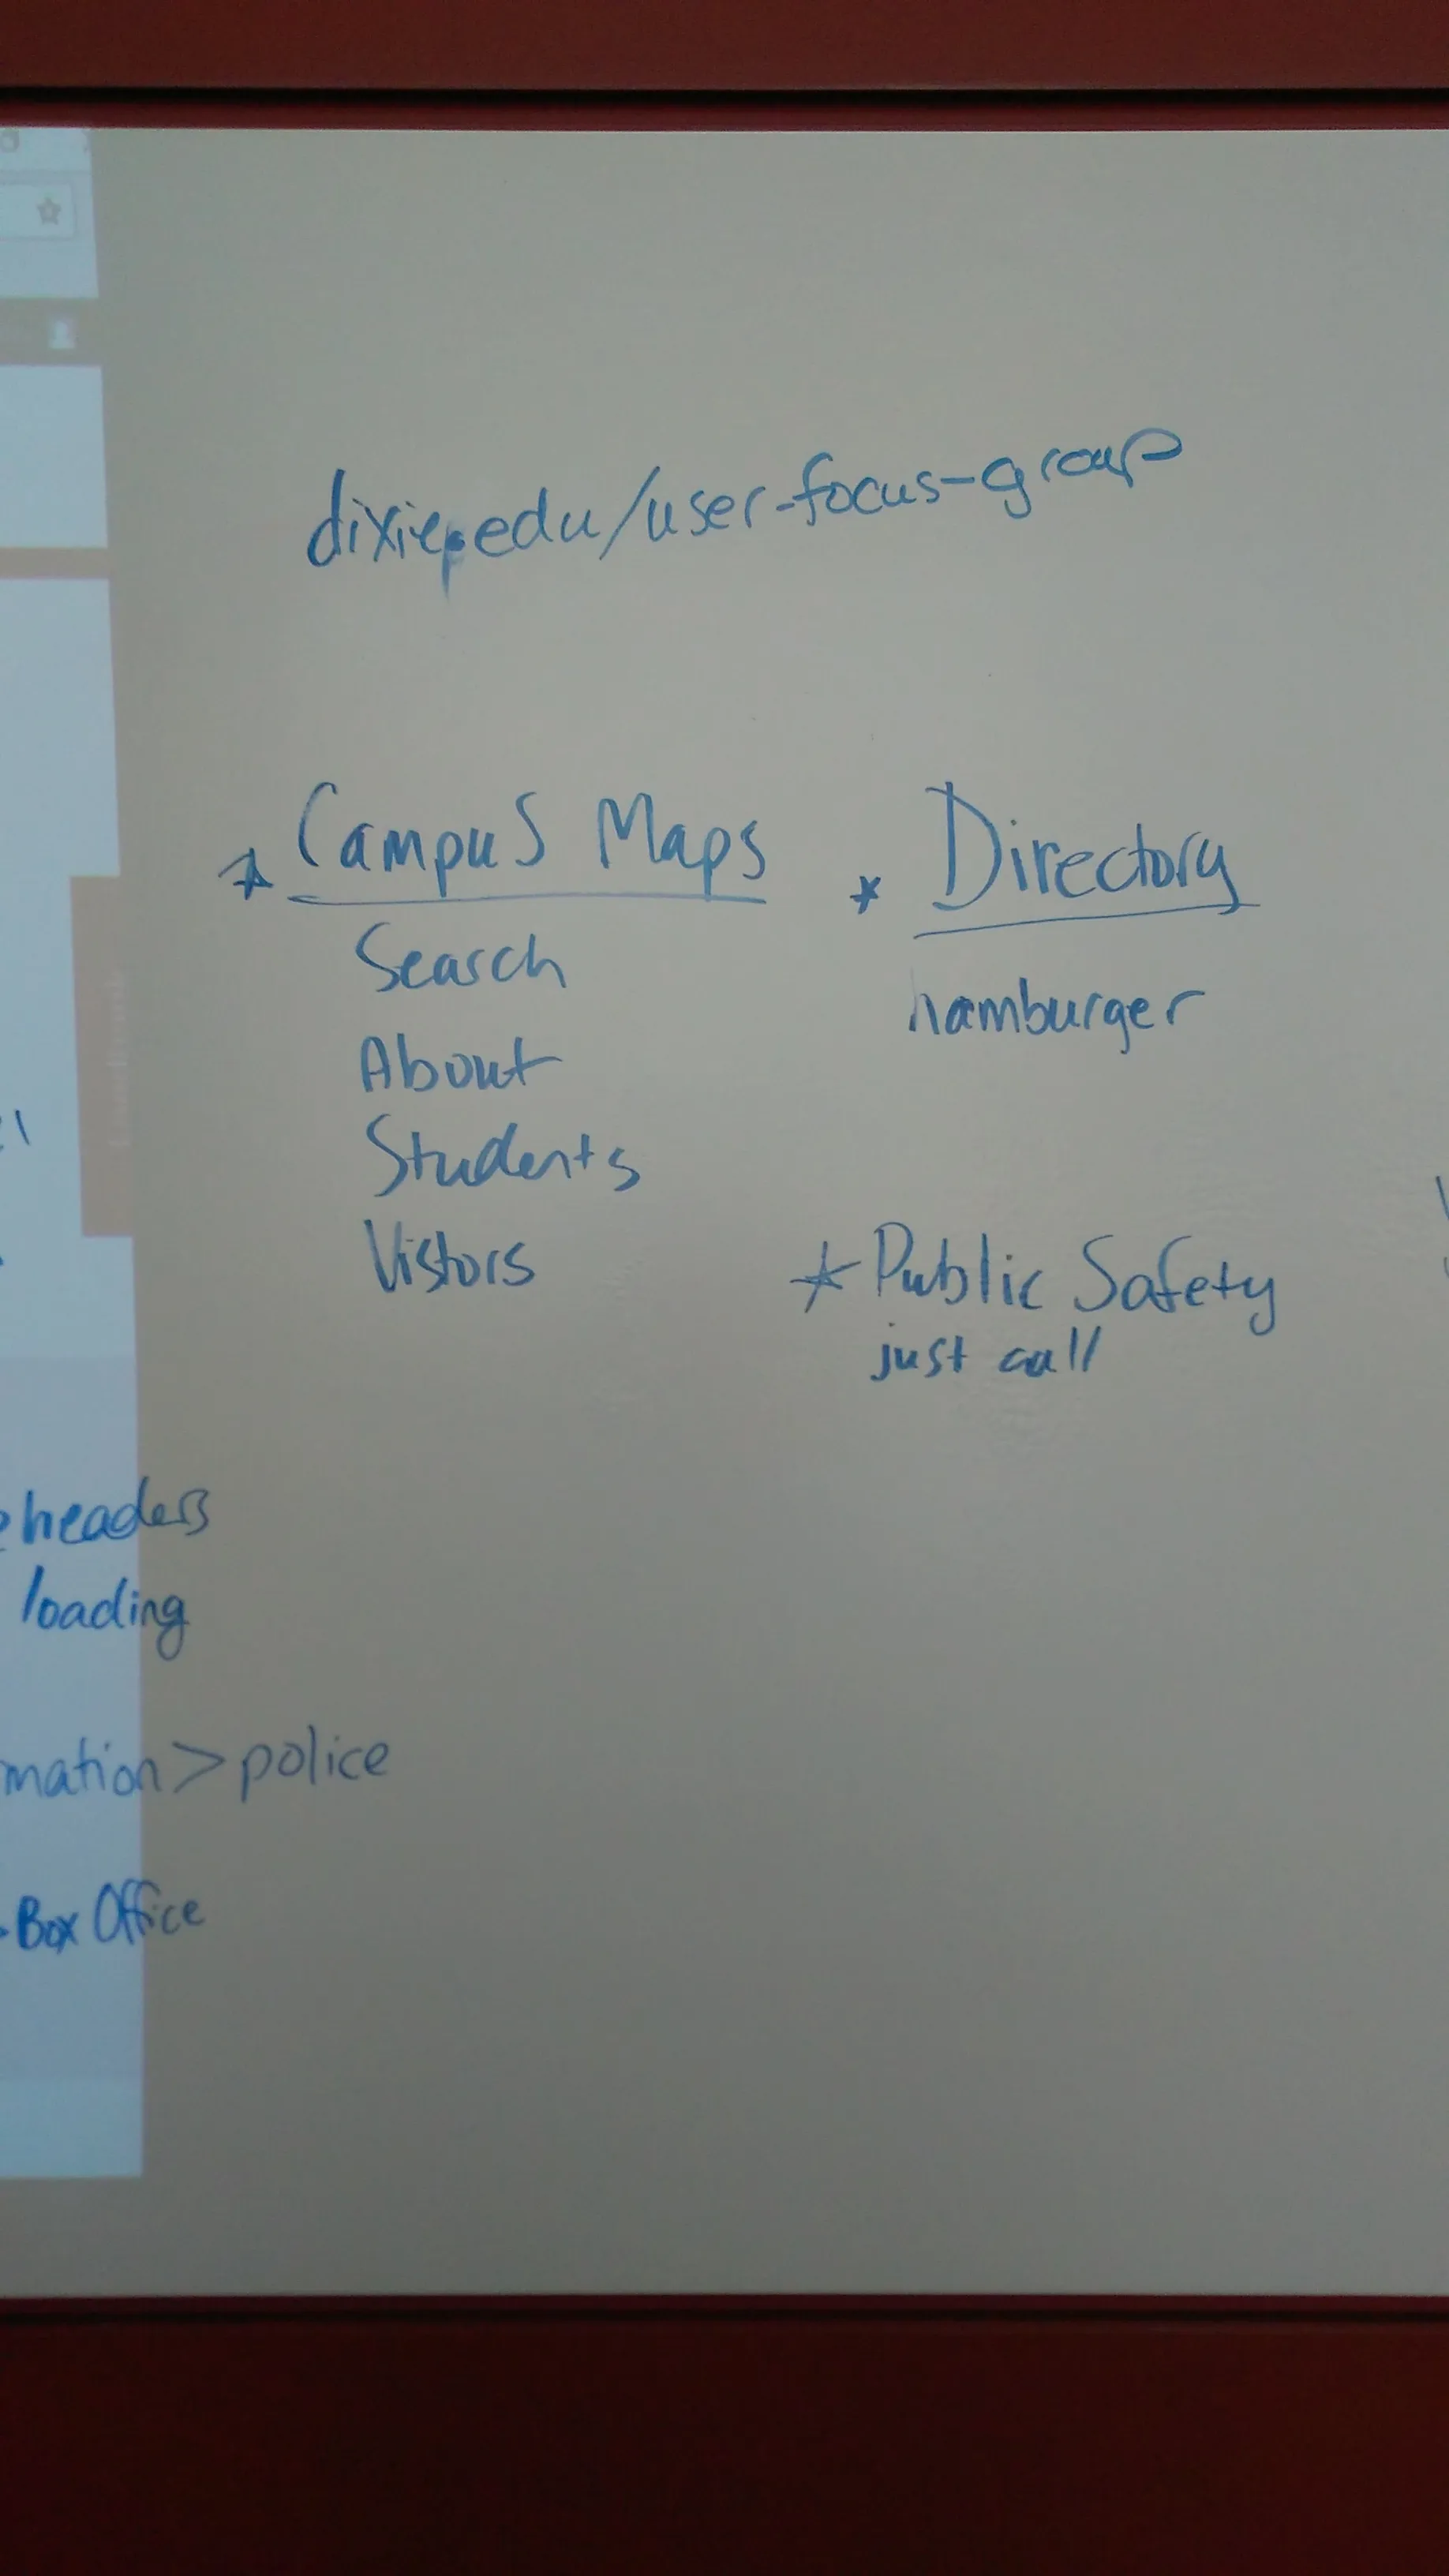 dixie.edu/user-focus-group
* Campus Maps
Search
About
Students
Vistors
* Directory
hamburger
* Public Safety
just call
headers
loading
mation > police
Box Office